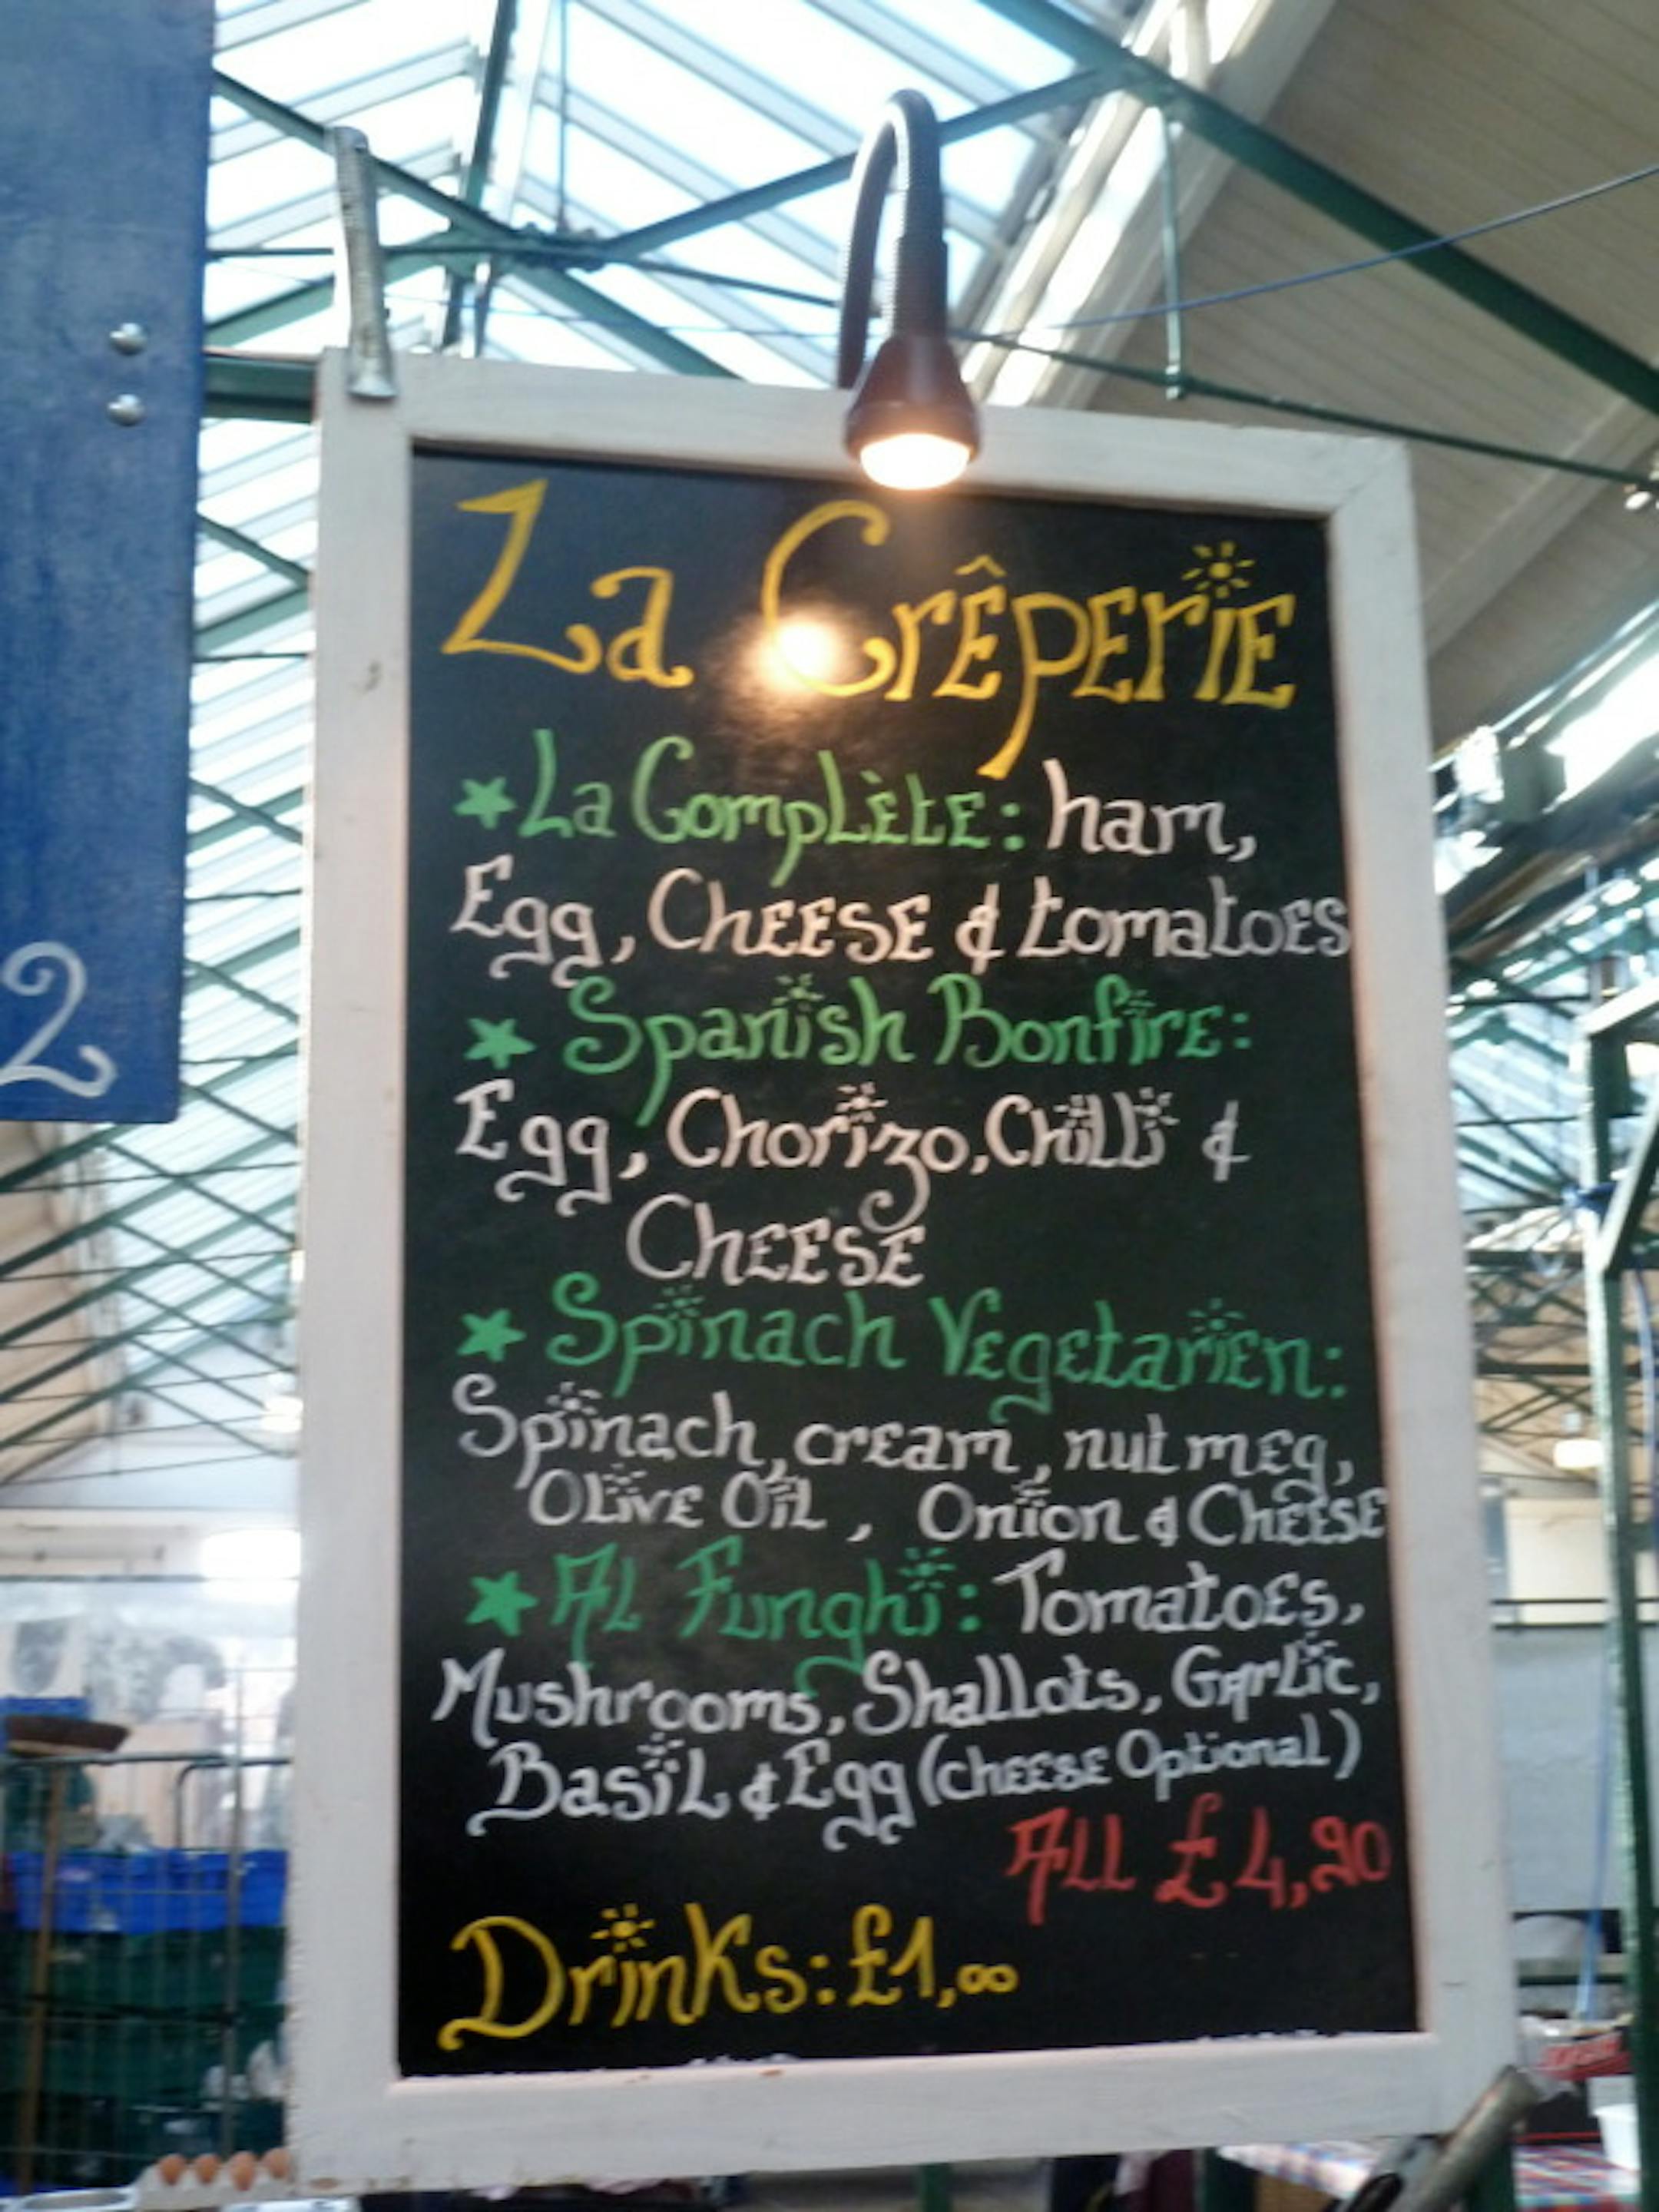 La Crêperie
★ La Complète: ham,
Egg, Cheese & tomatoes
★ Spanish Bonfire:
Egg, Chorizo, Chilli &
Cheese
★ Spinach Vegetarien:
Spinach, cream, nutmeg,
Olive Oil, Onion & Cheese
★ Al Funghi: Tomatoes,
Mushrooms, Shallots, Garlic,
Basil & Egg (cheese Optional)
All £4,90
Drinks: £1,00
2